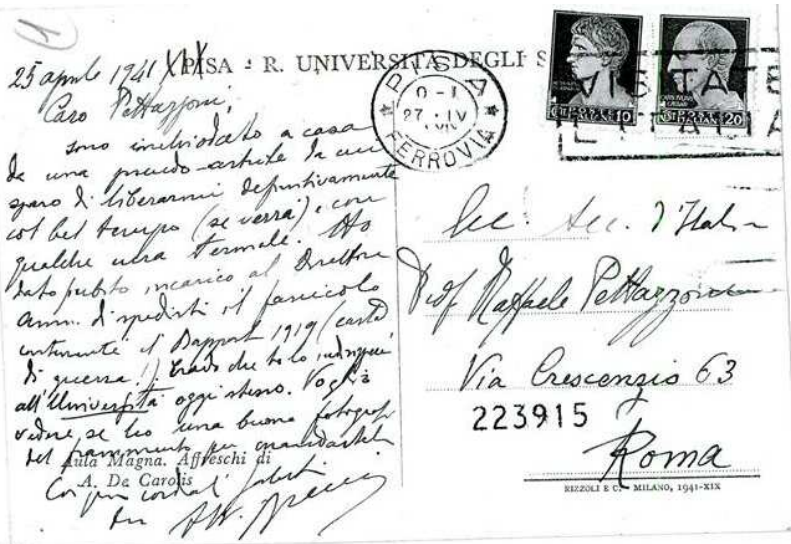 1
PISA - R. UNIVERSITÀ DEGLI S
25 aprile 1941 XIX
Caro Pettazzoni,
sono inchiodato a casa
da una pseudo-artrite da cui
spero di liberarmi definitivamente
col bel tempo (se verrà) e con
qualche cura termale. Ho
dato subito incarico al Direttore
amm. di spedirti il fascicolo
contenente il Rapport 1919 (carta
di guerra!). Credo che te lo
all'Università oggi stesso. Voglio
vedere se ho una buona fotograf
del frammento per mandartela
Coi più cordiali saluti
Aula Magna. Affreschi di
A. De Carolis
PISA
27 IV
FERROVIA
10
20
VISITATE
L'ITALIA
Acc. d'Italia
Prof Raffaele Pettazzoni
Via Crescenzio 63
223915
Roma
RIZZOLI E C. - MILANO, 1941-XIX